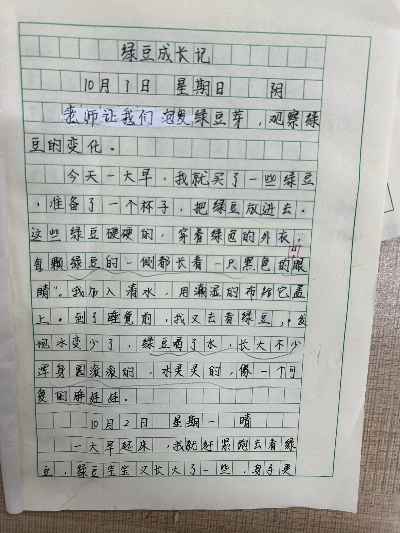 绿豆成长记
10月1日 星期日 阴
老师让我们泡发绿豆芽,观察绿
豆的变化。
今天一大早,我就买了一些绿豆
,准备了一个杯子,把绿豆放进去。
这些绿豆硬硬的,穿着绿色的外衣,
每颗绿豆的一侧都长着一只黑色的“眼
睛”。我加入清水,用潮湿的布给它盖
上。到了睡觉前,我又去看绿豆,发
现水变少了,绿豆喝了水,长大不少
浑身圆滚滚的,水灵灵的,像一个可
爱的胖娃娃。
10月2日 星期一 晴
一大早起床,我就赶紧跑去看绿
豆,绿豆宝宝又长大了一些,身子更